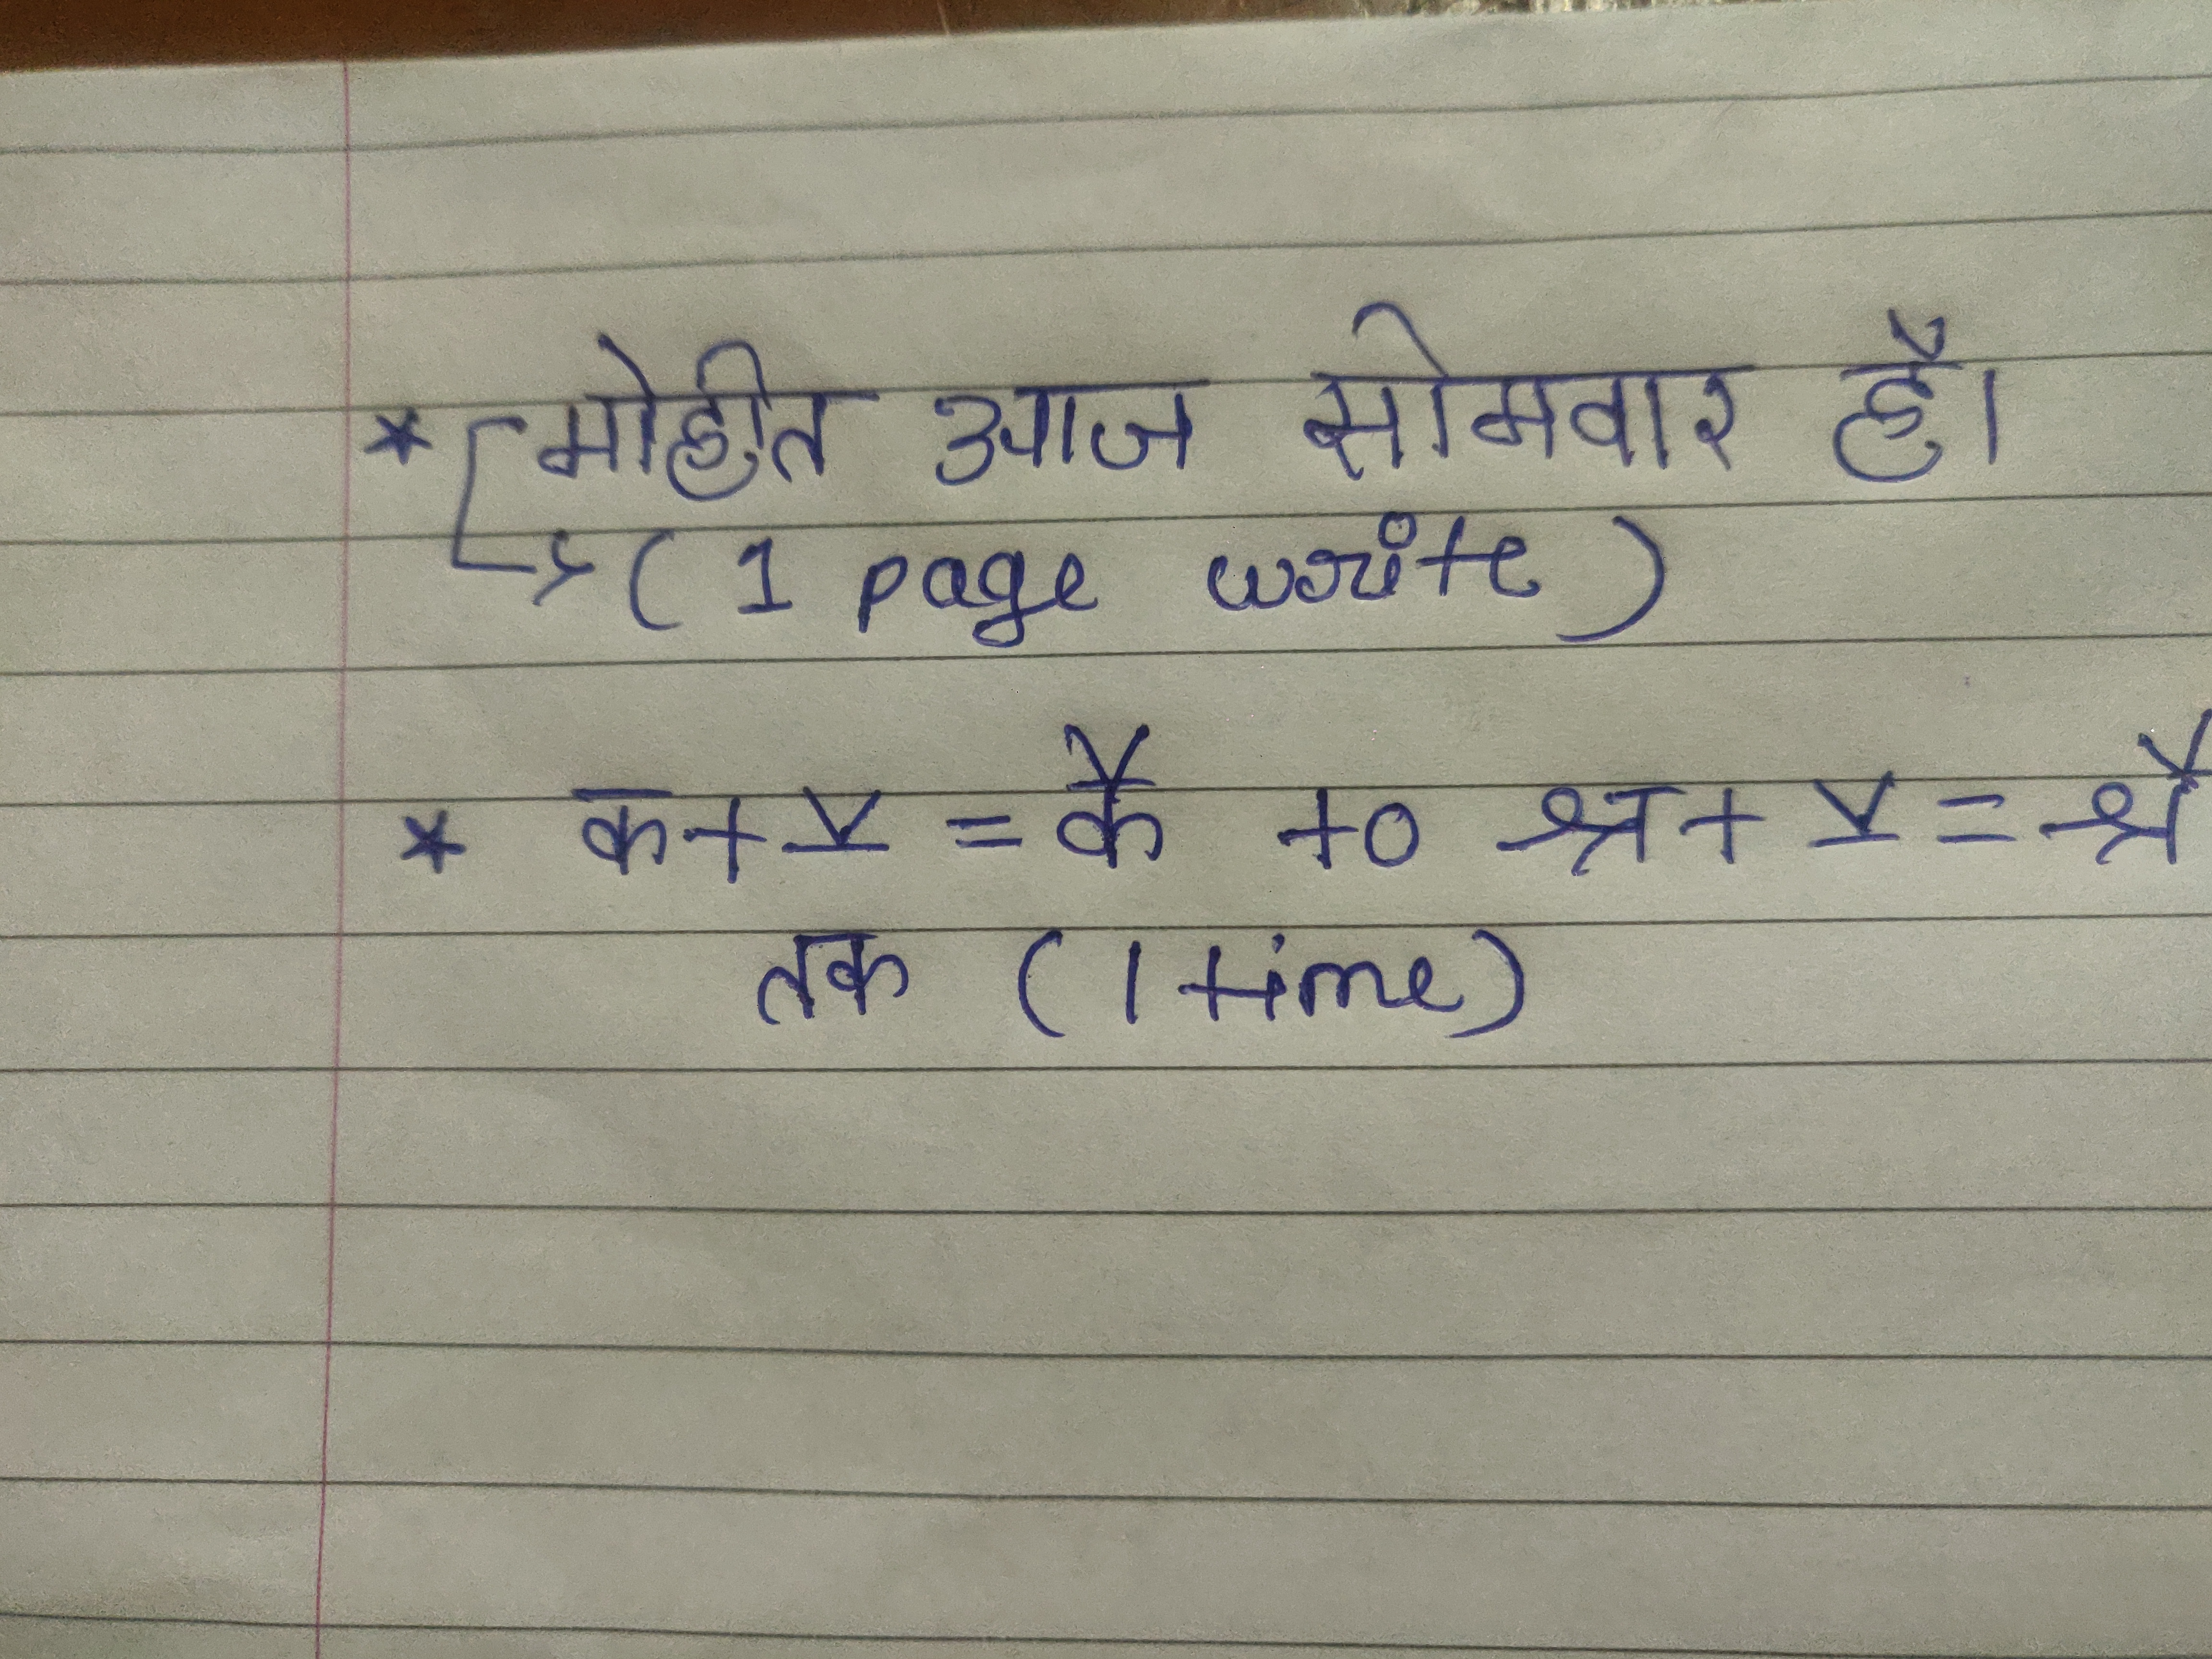 * मोहीत आज सोमवार है।
(1 page write)
* क + ै = कै to श्र + ै = श्रै
तक (1 time)